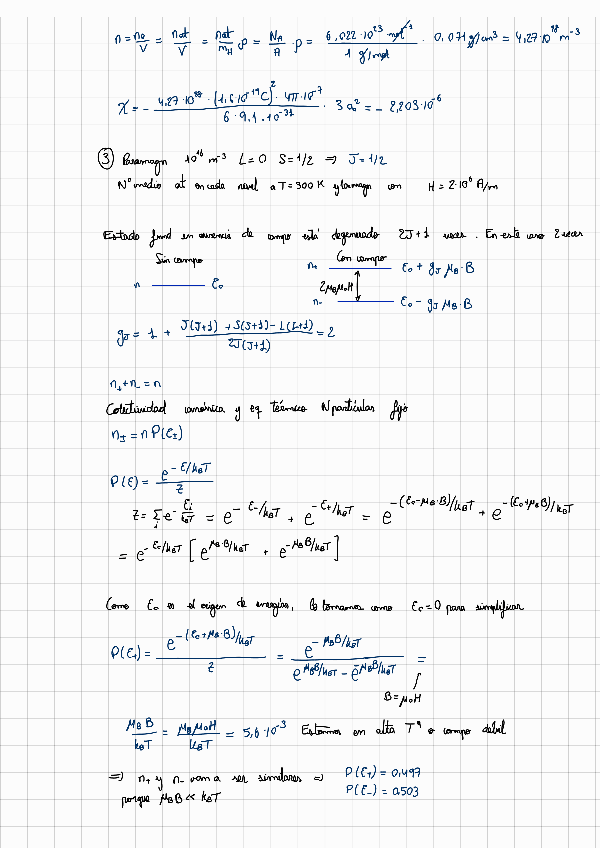 n = n₀/V = nat/V = nat/m_H ρ = N_A/A · ρ = 6,022·10²³ mol⁻¹ / 1 g/mol · 0,071 g/cm³ = 4,27·10²⁸ m⁻³
χ = - 4,27·10²⁸ · (1,6·10⁻¹⁹C)² · 4π·10⁻⁷ / 6·9,1·10⁻³¹ · 3a₀² = - 2,203·10⁻⁶
③ Paramagn 10¹⁶ m⁻³ L=0 S=1/2 ⇒ J=1/2
Nº medio at en cada nivel a T=300 K y con H = 2·10⁶ A/m
Estado fund en ausencia de campo está degenerado 2J+1 veces. En este caso 2 veces
Sin campo Con campo
n₊ E₀ + g_J μ_B·B
n E₀ 2μ_Bμ₀H
n₋ E₀ - g_J μ_B·B
g_J = 1 + J(J+1) + S(S+1) - L(L+1) / 2J(J+1) = 2
n₊+n₋ = n
Colectividad canónica y eq térmico N partículas fijo
n± = n P(E±)
P(E) = e^(-E/k_BT) / Z
Z = Σᵢ e^(-Eᵢ/k_BT) = e^(-E₋/k_BT) + e^(-E₊/k_BT) = e^(-(E₀-μ_B·B)/k_BT) + e^(-(E₀+μ_B B)/k_BT)
= e^(-E₀/k_BT) [e^(μ_B·B/k_BT) + e^(-μ_B B/k_BT)]
Como E₀ es el origen de energías, lo tomamos como E₀=0 para simplificar
P(E₊) = e^(-(E₀+μ_B·B)/k_BT) / Z = e^(-μ_B B/k_BT) / e^(μ_B B/k_BT) - e^(-μ_B B/k_BT) =
B=μ₀H
μ_B B / k_BT = μ_B μ₀H / k_BT = 5,6·10⁻³ Estamos en alta Tª o campo débil
⇒ n₊ y n₋ van a ser similares ⇒ P(E₊) = 0,497
porque μ_B B ≪ k_BT P(E₋) = 0,503